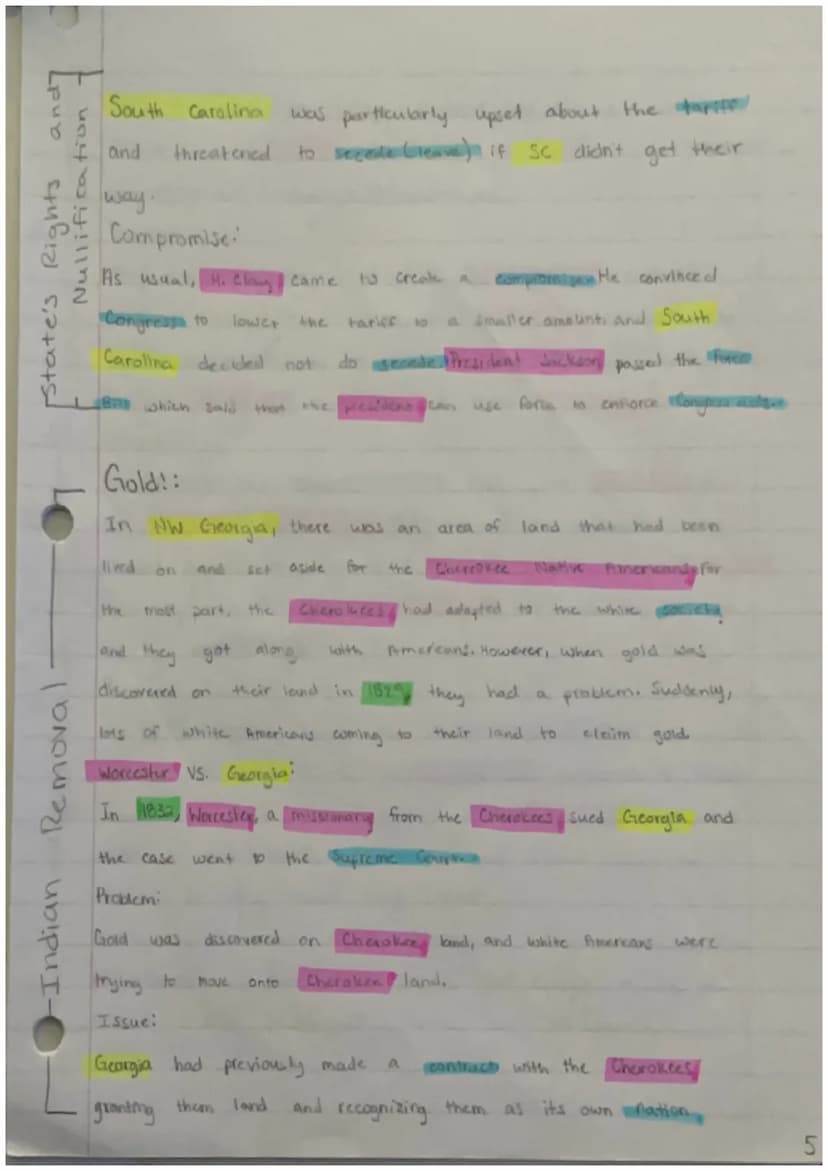 State's Rights and
Nullification
South Carolina was particularly upset about the tariff
and threatened to secede (leave) if SC didn't get their
way.
Compromise:
As usual, H. Clay came to create a compromise. He convinced
Congress to lower the tariff to a smaller amount, and South
Carolina decided not do secede. President Jackson passed the Force
Bill which said that the president can use force to enforce Congress
Gold!:
In NW Georgia, there was an area of land that had been
lived on and set aside for the Cherokee Native Americans. For
the most part, the Cherokees had adapted to the white society,
and they got along with Americans. However, when gold was
discovered on their land in 1829, they had a problem. Suddenly,
lots of white Americans coming to their land to claim gold.
Worcester vs. Georgia:
In 1832, Worcester, a missionary from the Cherokees, sued Georgia and
the case went to the Supreme Court.
Problem:
Gold was discovered on Cherokee land, and white Americans were
trying to move onto Cherokee land.
Issue:
Georgia had previously made a contract with the Cherokees,
granting them land and recognizing them as its own nation.
Indian Removal
5